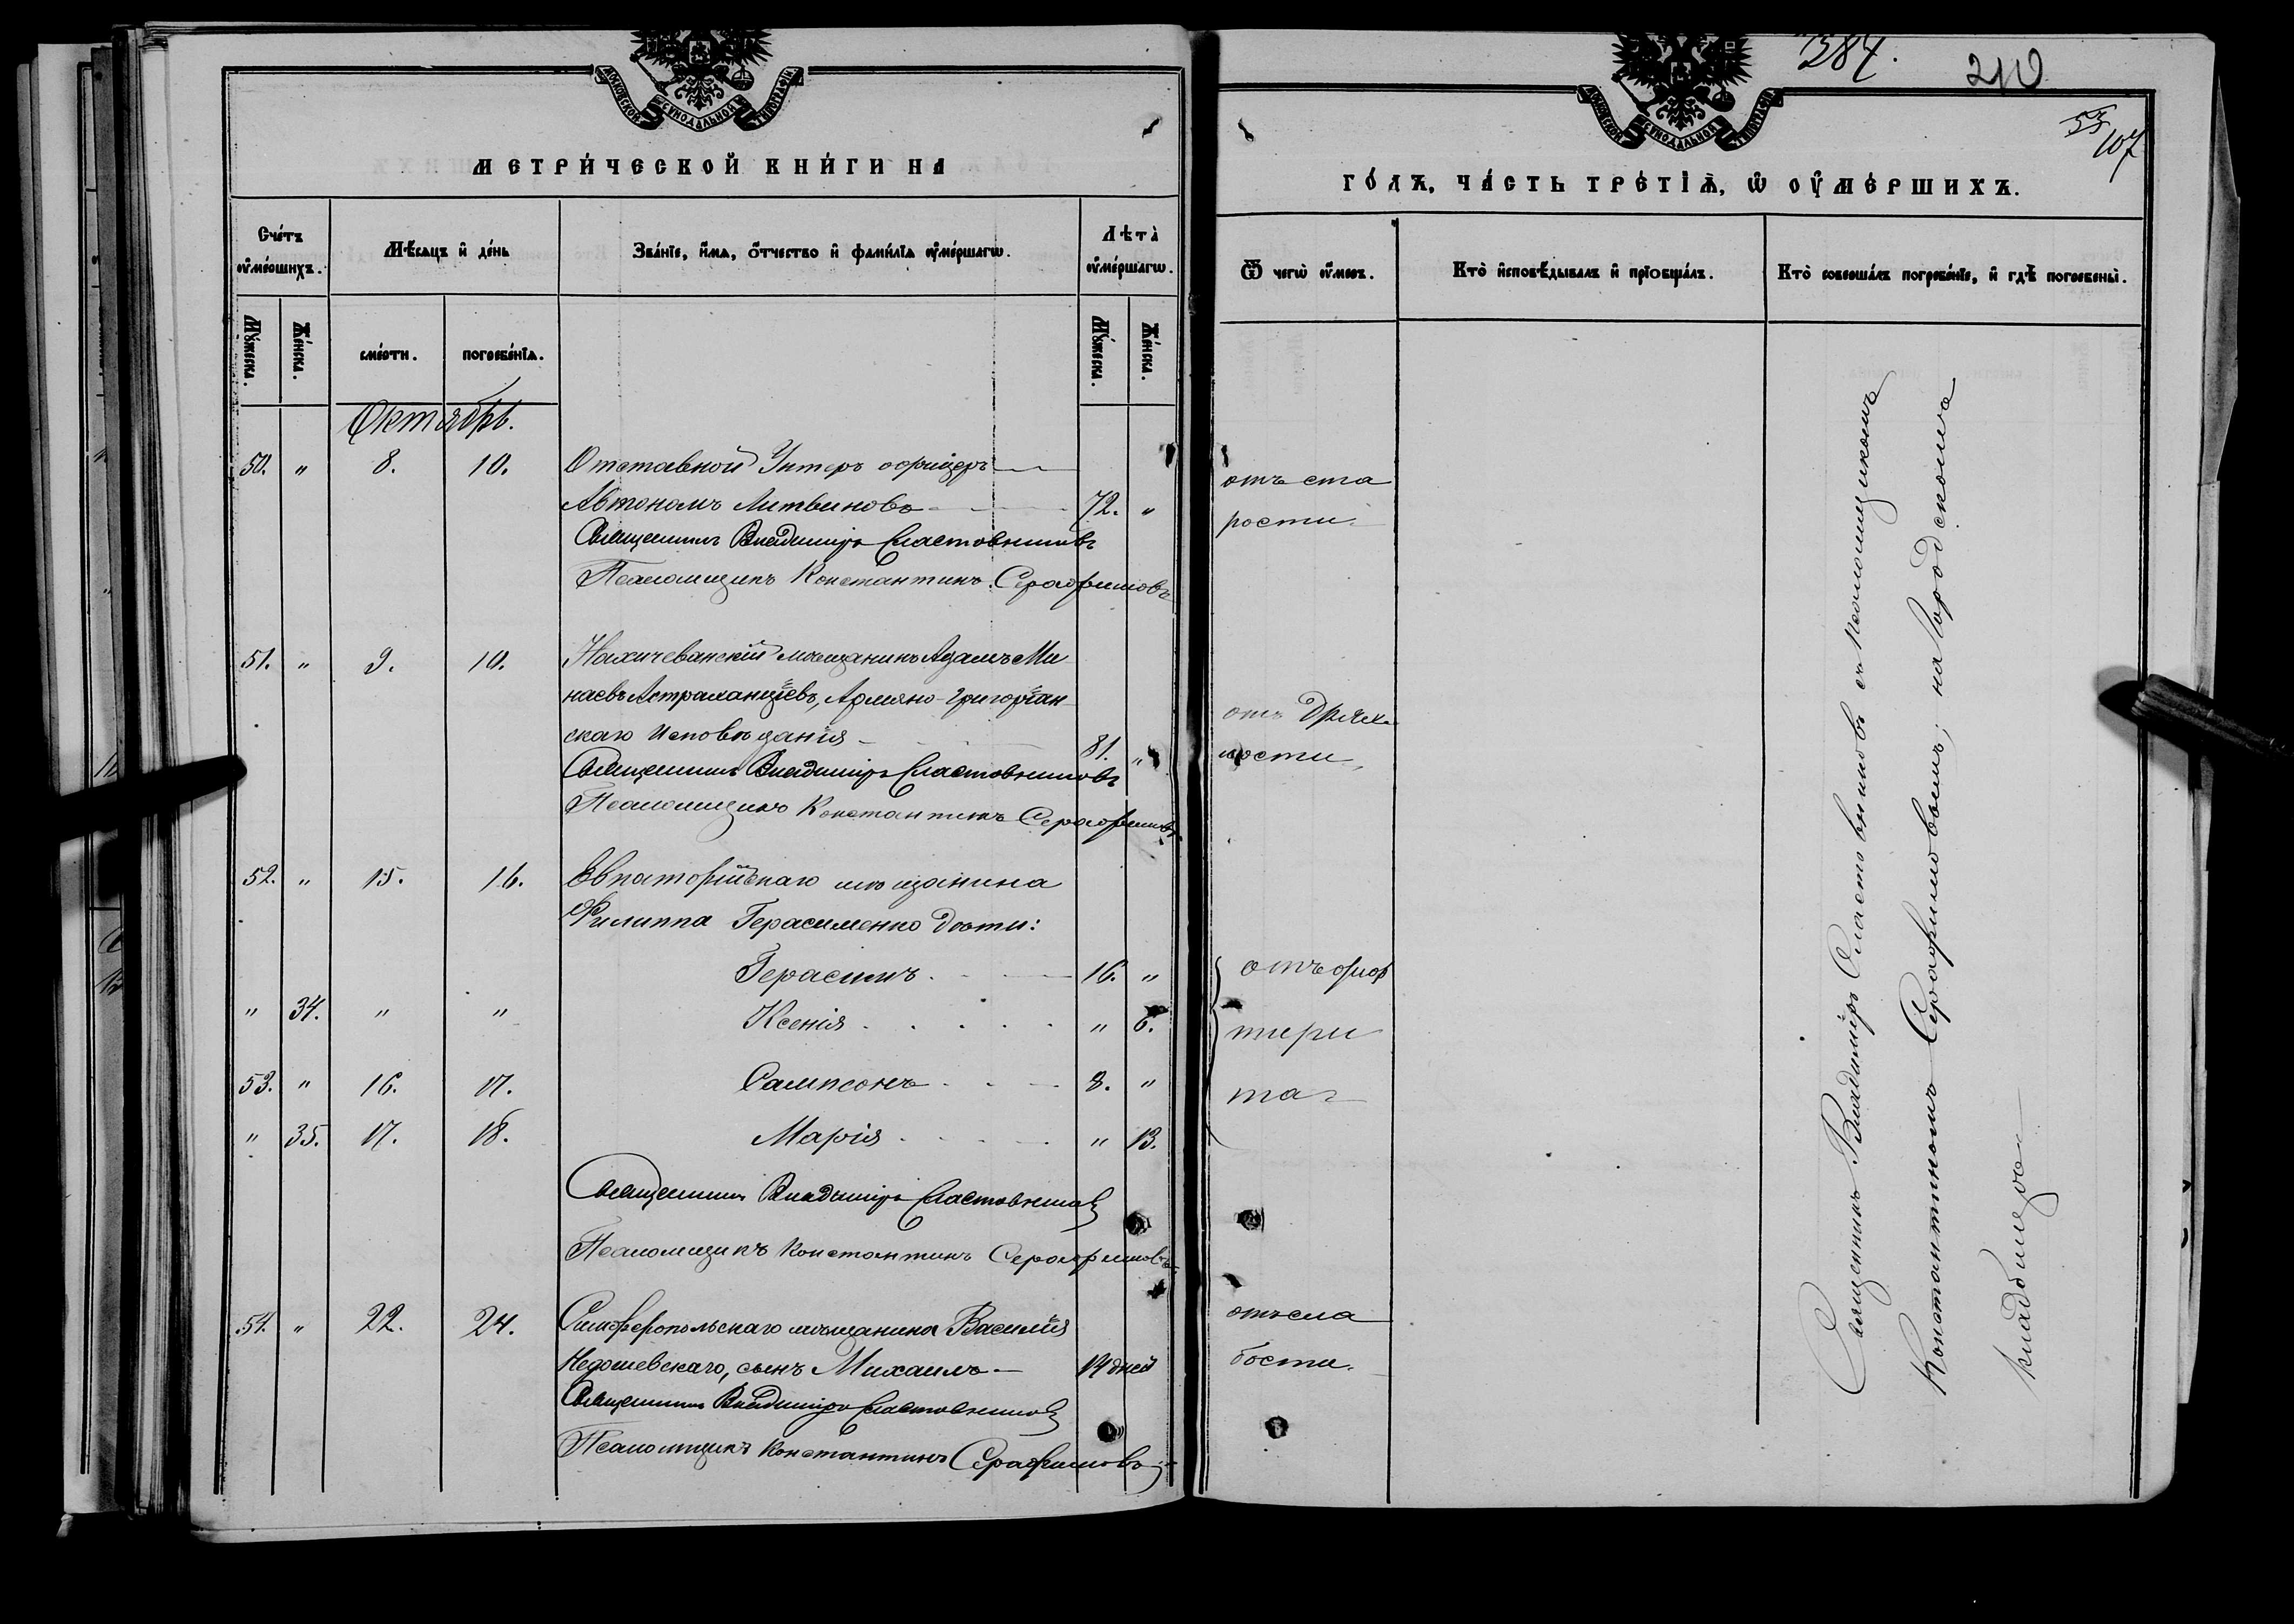 МОСКОВСКОЙ СѴНОДАЛЬНОЙ ТИПОГРАФІИ
МЕТРИ́ЧЕСКОЙ КНИ́ГИ НА
Сче́тъ ᲂу҆ме́ршихъ.
Мѣ́сяцъ и҆ де́нь
Зва́нїе, и҆́мѧ, ѻ҆́тчество и҆ фами́лїѧ ᲂу҆ме́ршагѡ.
Лѣта̀ ᲂу҆ме́ршагѡ.
Мꙋ́жеска.
Же́нска.
сме́рти.
погребе́нїѧ.
Мꙋ́жеска.
Же́нска.
Октябрь.
50. " 8. 10. Отставной Унтеръ офицеръ
Автономъ Литвиновъ 72. "
Священникъ Владиміръ Сластовниковъ
Псаломщикъ Константинъ Серафимовъ
51. " 9. 10. Нахичеванскій мѣщанинъ Адамъ Ми
наевъ Астраханцевъ, Армяно-Григоріан
скаго Исповѣданія 81. "
Священникъ Владиміръ Сластовниковъ
Псаломщикъ Константинъ Серафимовъ
52. " 15. 16. Евпаторійскаго мѣщанина
Филиппа Герасименко дѣти:
Герасимъ 16. "
" 34. " " Ксенія " 6.
53. " 16. 17. Сампсонъ 8. "
" 35. 17. 18. Марія " 13.
Священникъ Владиміръ Сластовниковъ
Псаломщикъ Константинъ Серафимовъ
54. " 22. 24. Симферопольскаго мѣщанина Василія
Недошевскаго, сынъ Михаилъ 14 дней
Священникъ Владиміръ Сластовниковъ
Псаломщикъ Константинъ Серафимовъ
384.
210
53
107
МОСКОВСКОЙ СѴНОДАЛЬНОЙ ТИПОГРАФІИ
ГО́ДЪ, ЧА́СТЬ ТРЕ́ТЇѦ, Ѡ ОУ҆МЕ́РШИХЪ.
Ѿ чегѡ̀ ᲂу҆́меръ.
Кто̀ и҆сповѣ́дывалъ и҆ прїѡбща́лъ.
Кто̀ соверша́лъ погребе́нїе, и҆ гдѣ̀ погребены̀.
отъ ста
рости.
отъ дрях
лости
отъ диф
тери
та
отъ сла
бости.
Священникъ Владиміръ Сластовниковъ съ псаломщикомъ
Константиномъ Серафимовымъ; на городскомъ
кладбищѣ